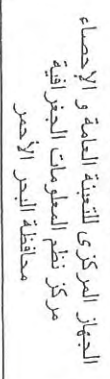 الجهاز المركزى للتعبئة العامة و الإحصاء
مركز نظم المعلومات الجغرافية
محافظة البحر الأحمر